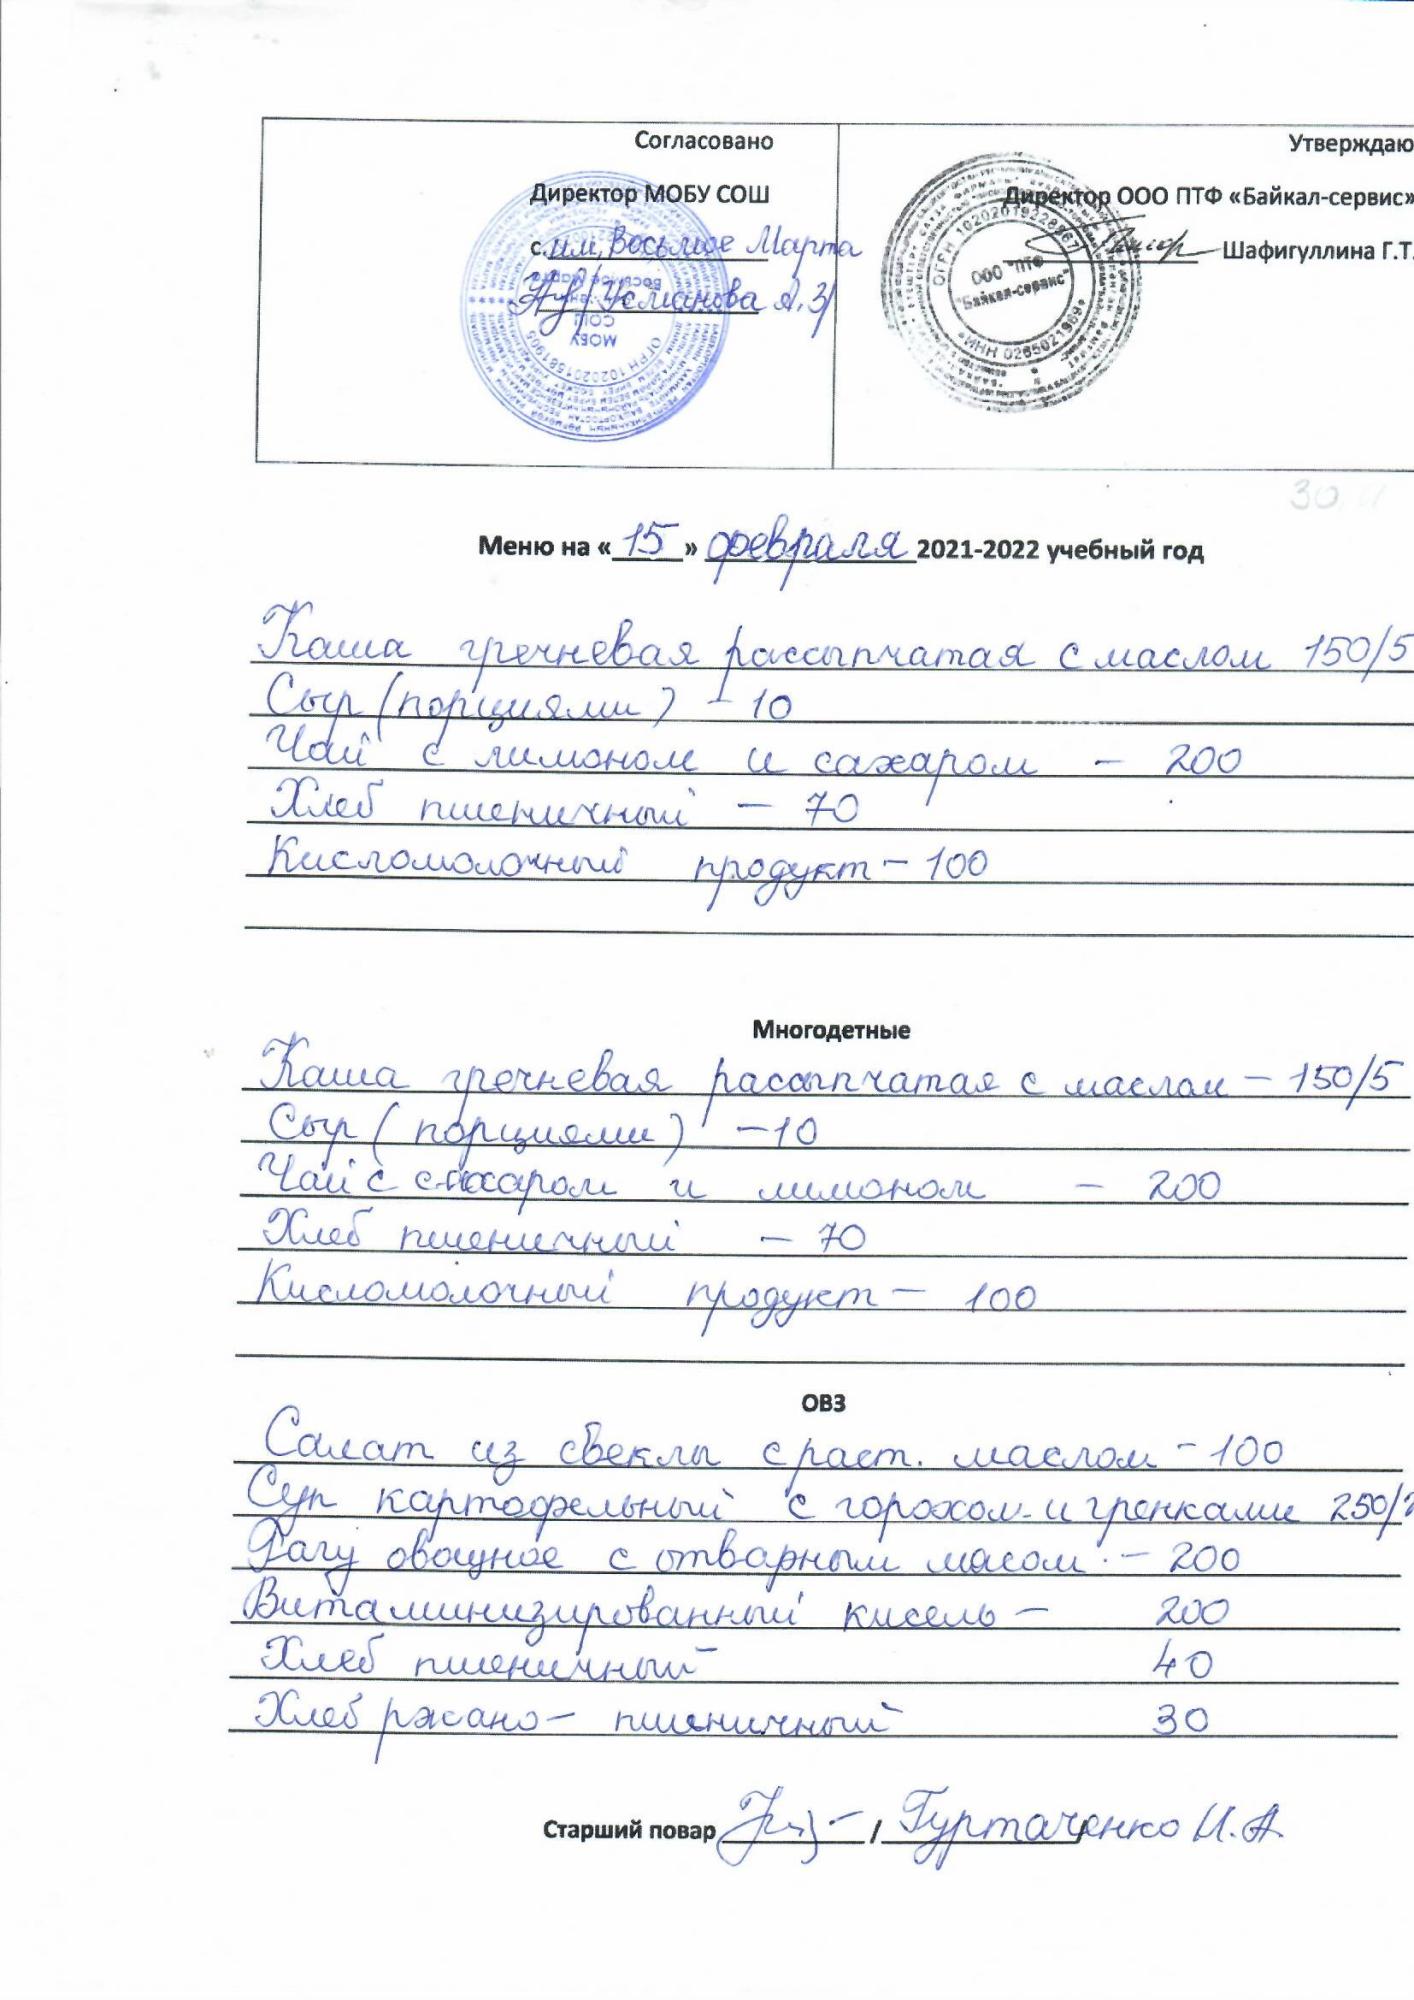 Согласовано
Директор МОБУ СОШ
с. им. Восьмое Марта
/ Усманова А.З/
Утверждаю
Директор ООО ПТФ «Байкал-сервис»
Шафигуллина Г.Т.
МОБУ
СОШ
ОГРН 1020201581905
ОГРН 1020201922867
ООО "ПТФ
"Байкал-сервис"
ИНН 0265021969
30
Меню на « 15 » февраля 2021-2022 учебный год
Каша гречневая рассыпчатая с маслом 150/5
Сыр (порциями) - 10
Чай с лимоном и сахаром - 200
Хлеб пшеничный - 70
Кисломолочный продукт - 100
Многодетные
Каша гречневая рассыпчатая с маслом - 150/5
Сыр (порциями) - 10
Чай с сахаром и лимоном - 200
Хлеб пшеничный - 70
Кисломолочный продукт - 100
ОВЗ
Салат из свеклы с раст. маслом - 100
Суп картофельный с горохом и гренками 250/
Рагу овощное с отварным мясом - 200
Витаминизированный кисель - 200
Хлеб пшеничный 40
Хлеб ржано - пшеничный 30
Старший повар / Гуртаченко И.А